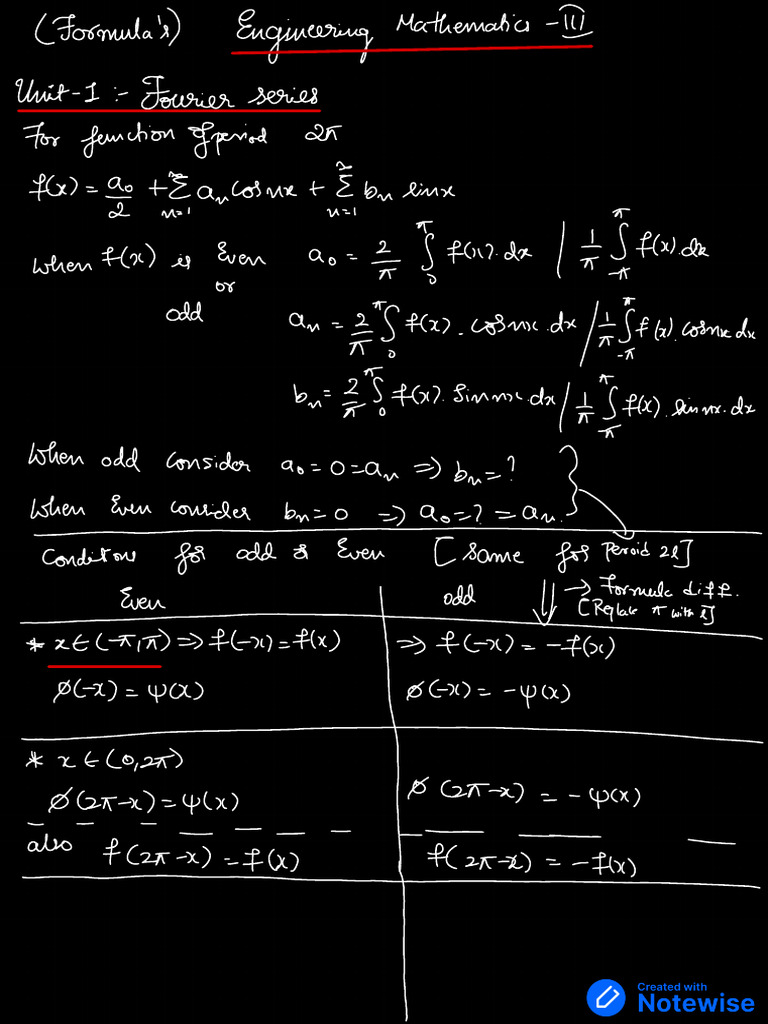 (Formula's) Engineering Mathematics - III
Unit-1 :- Fourier series
For function of period 2π
f(x) = a₀/2 + Σ_{n=1}^{∞} aₙ cos nx + Σ_{n=1}^{∞} bₙ sinx
When f(x) is Even a₀ = 2/π ∫₀^π f(x).dx / 1/π ∫_{-π}^{π} f(x).dx
or
odd aₙ = 2/π ∫₀^π f(x).cosnx.dx / 1/π ∫_{-π}^{π} f(x).cosnx dx
bₙ = 2/π ∫₀^π f(x).Sinnx.dx / 1/π ∫_{-π}^{π} f(x).sinnx.dx
When odd consider a₀ = 0 = aₙ ⇒ bₙ = ?
When Even consider bₙ = 0 ⇒ a₀ = ? = aₙ.
Conditions for odd & Even [Same for Peroid 2l]
→ Formula diff.
[Replace π with l]
Even odd
* x ∈ (-π,π) ⇒ f(-x) = f(x) ⇒ f(-x) = -f(x)
∅(-x) = ψ(x) ∅(-x) = -ψ(x)
* x ∈ (0,2π)
∅(2π-x) = ψ(x) ∅(2π-x) = -ψ(x)
also f(2π-x) = f(x) f(2π-x) = -f(x)
Created with
Notewise